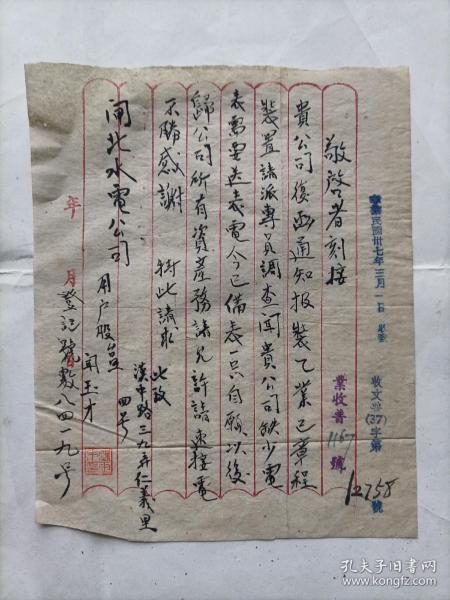 中華民國卅七年三月一日
收文業(37)字第12758號
業收普1167號
敬啓者刻接
貴公司復函通知报裝乙業已章程
裝置請派專員調查聞貴公司缺少電
表需要送表電今已備表一只自願以後
歸公司所有資產務請允許請速接電
不勝感謝 特此請求
此致
閘北水電公司 用户股台
漢中路三九弄仁義里
四号
聞玉才
年 月
登記號數八四一九号
孔夫子旧书网
www.kongfz.com